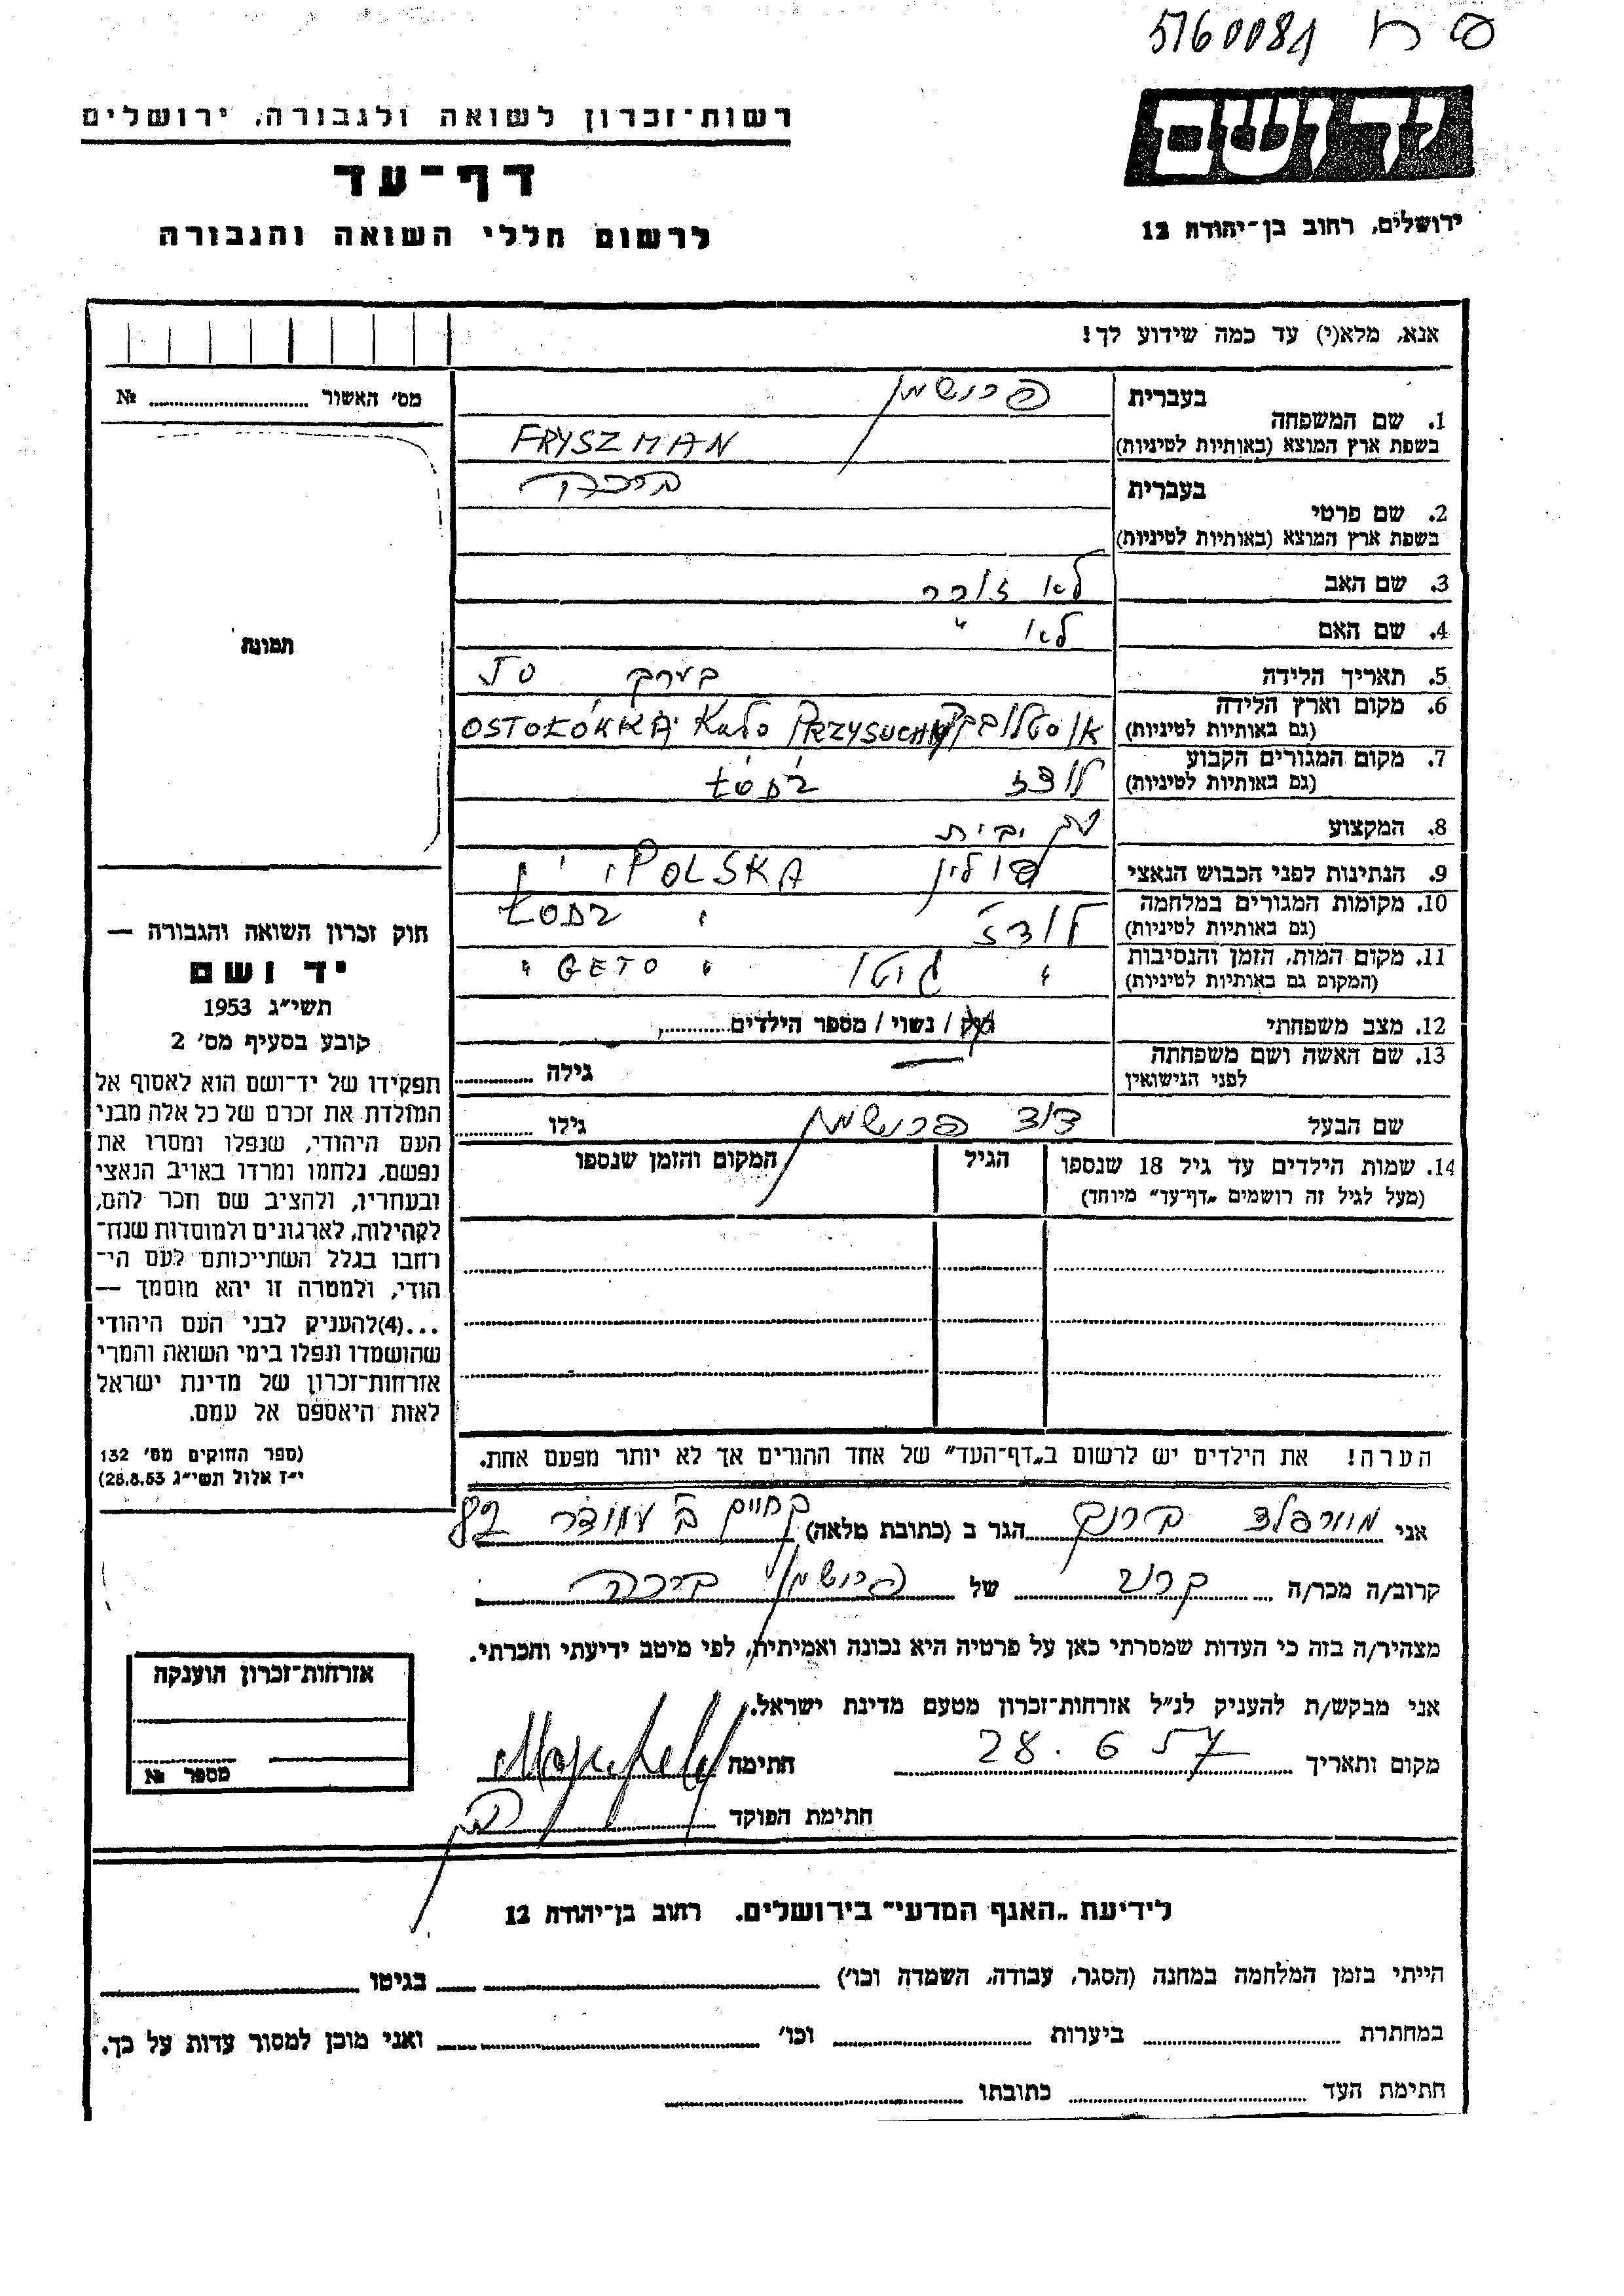 5160081 פ ח
יד ושם
ירושלים, רחוב בן-יהודה 12
רשות-זכרון לשואה ולגבורה, ירושלים
דף-עד
לרשום חללי השואה והגבורה
אנא, מלא(י) עד כמה שידוע לך!
מס' האשור № 
תמונה
1. שם המשפחה בעברית פרישמן
בשפת ארץ המוצא (באותיות לטיניות) FRYSZMAN
2. שם פרטי בעברית ברכה
בשפת ארץ המוצא (באותיות לטיניות)
3. שם האב לא זוכר
4. שם האם לא "
5. תאריך הלידה בערך 50
6. מקום וארץ הלידה
(גם באותיות לטיניות) OSTOŁÓKKA Koło PRZYSUCHY
7. מקום המגורים הקבוע
(גם באותיות לטיניות) לודז ŁODZ
8. המקצוע עק' בית
9. הנתינות לפני הכבוש הנאצי פולין POLSKA
10. מקומות המגורים במלחמה
(גם באותיות לטיניות) לודז ŁODZ
11. מקום המות, הזמן והנסיבות
(המקום גם באותיות לטיניות) " גיטו " GETO "
12. מצב משפחתי רוק / נשוי / מספר הילדים
13. שם האשה ושם משפחתה
לפני הנישואין גילה
שם הבעל דוד פרישמן גילו
14. שמות הילדים עד גיל 18 שנספו הגיל המקום והזמן שנספו
(מעל לגיל זה רושמים „דף-עד" מיוחד)
הערה! את הילדים יש לרשום ב„דף-העד" של אחד ההורים אך לא יותר מפעם אחת.
חוק זכרון השואה והגבורה —
יד ושם
תשי"ג 1953
קובע בסעיף מס' 2
תפקידו של יד-ושם הוא לאסוף אל
המולדת את זכרם של כל אלה מבני
העם היהודי, שנפלו ומסרו את
נפשם, נלחמו ומרדו באויב הנאצי
ובעוזריו, ולהציב שם וזכר להם,
לקהילות, לארגונים ולמוסדות שנח-
רבו בגלל השתייכותם לעם הי-
הודי, ולמטרה זו יהא מוסמך —
...(4)להעניק לבני העם היהודי
שהושמדו ונפלו בימי השואה והמרי
אזרחות-זכרון של מדינת ישראל
לאות היאספם אל עמם.
(ספר החוקים מס' 132
י"ז אלול תשי"ג 28.8.53)
אני הגר ב (כתובת מלאה) 82
קרוב/ה מכר/ה קרוב של פרישמן ברכה
מצהיר/ה בזה כי העדות שמסרתי כאן על פרטיה היא נכונה ואמיתית, לפי מיטב ידיעתי והכרתי.
אני מבקש/ת להעניק לנ"ל אזרחות-זכרון מטעם מדינת ישראל.
מקום ותאריך 28. 6 57 חתימה
חתימת הפוקד
אזרחות-זכרון הוענקה
מספר №
לידיעת „האגף המדעי" בירושלים. רחוב בן-יהודה 12
הייתי בזמן המלחמה במחנה (הסגר, עבודה, השמדה וכו') בגיטו
במחתרת ביערות וכו' ואני מוכן למסור עדות על כך.
חתימת העד כתובתו